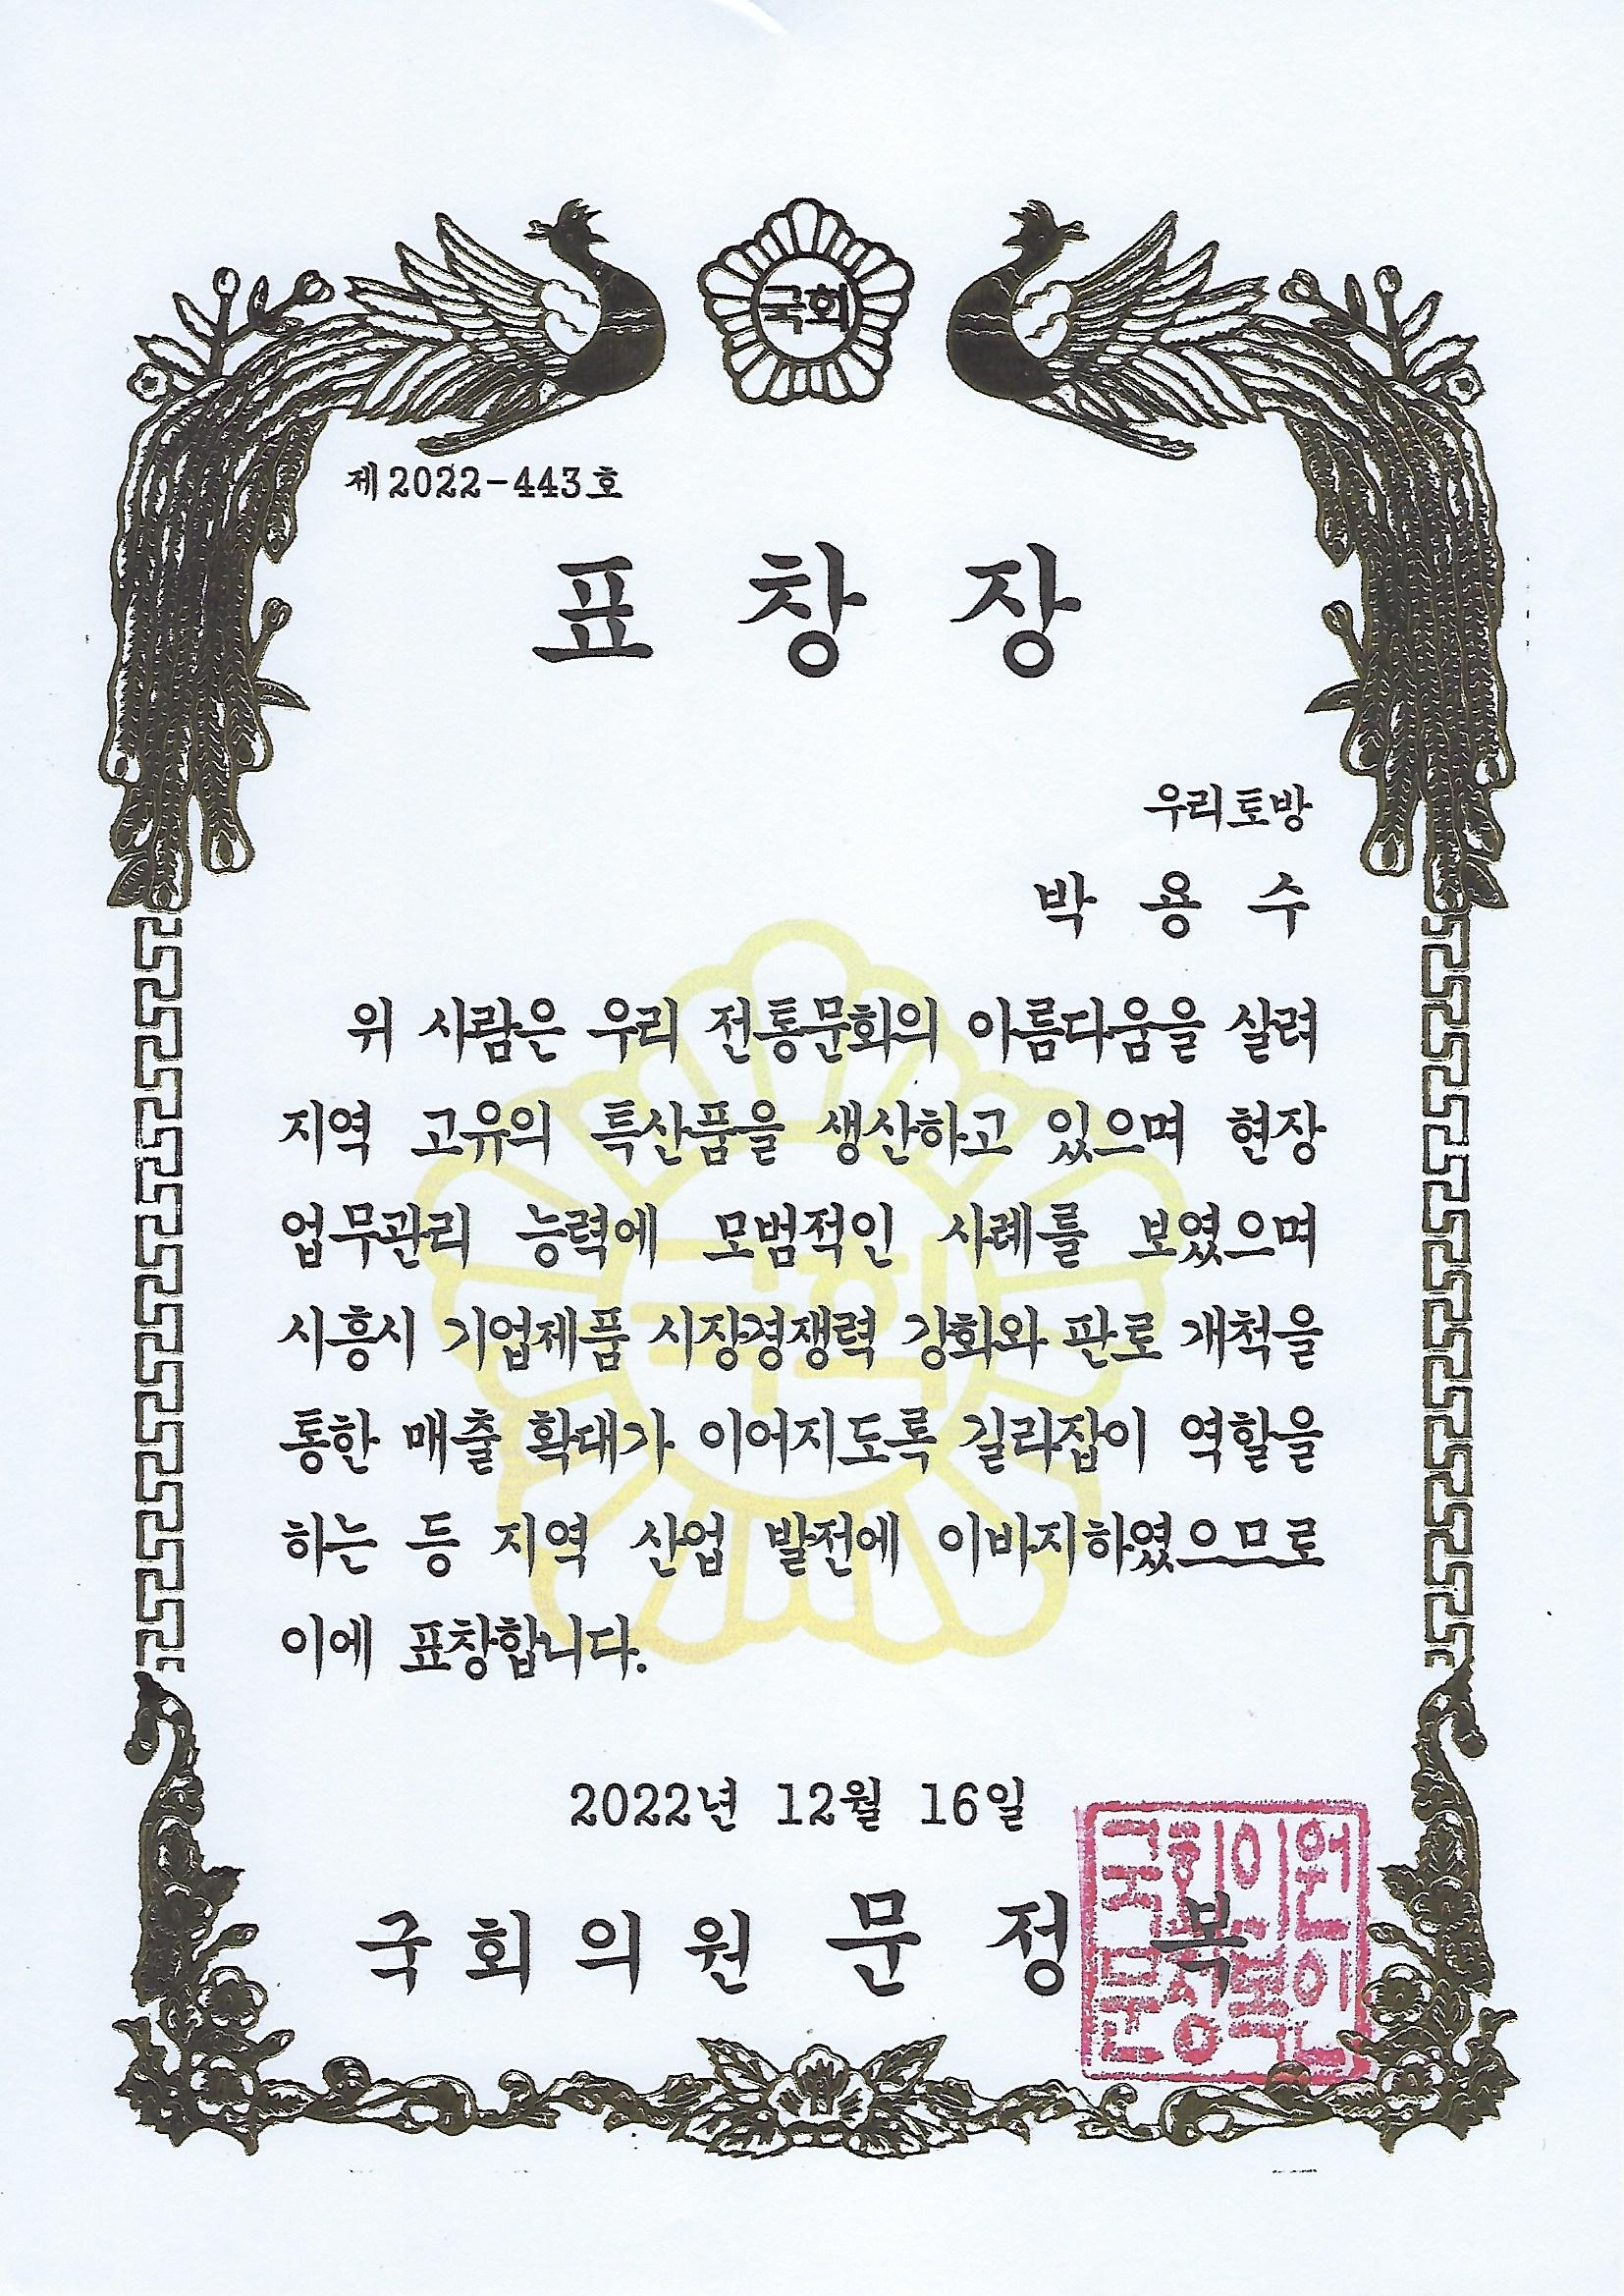 국회
제2022-443호
표 창 장
우리토방
박 용 수
위 사람은 우리 전통문화의 아름다움을 살려
지역 고유의 특산품을 생산하고 있으며 현장
업무관리 능력에 모범적인 사례를 보였으며
시흥시 기업제품 시장경쟁력 강화와 판로 개척을
통한 매출 확대가 이어지도록 길라잡이 역할을
하는 등 지역 산업 발전에 이바지하였으므로
이에 표창합니다.
국회
2022년 12월 16일
국회의원 문 정 복
국회의원
문정복인